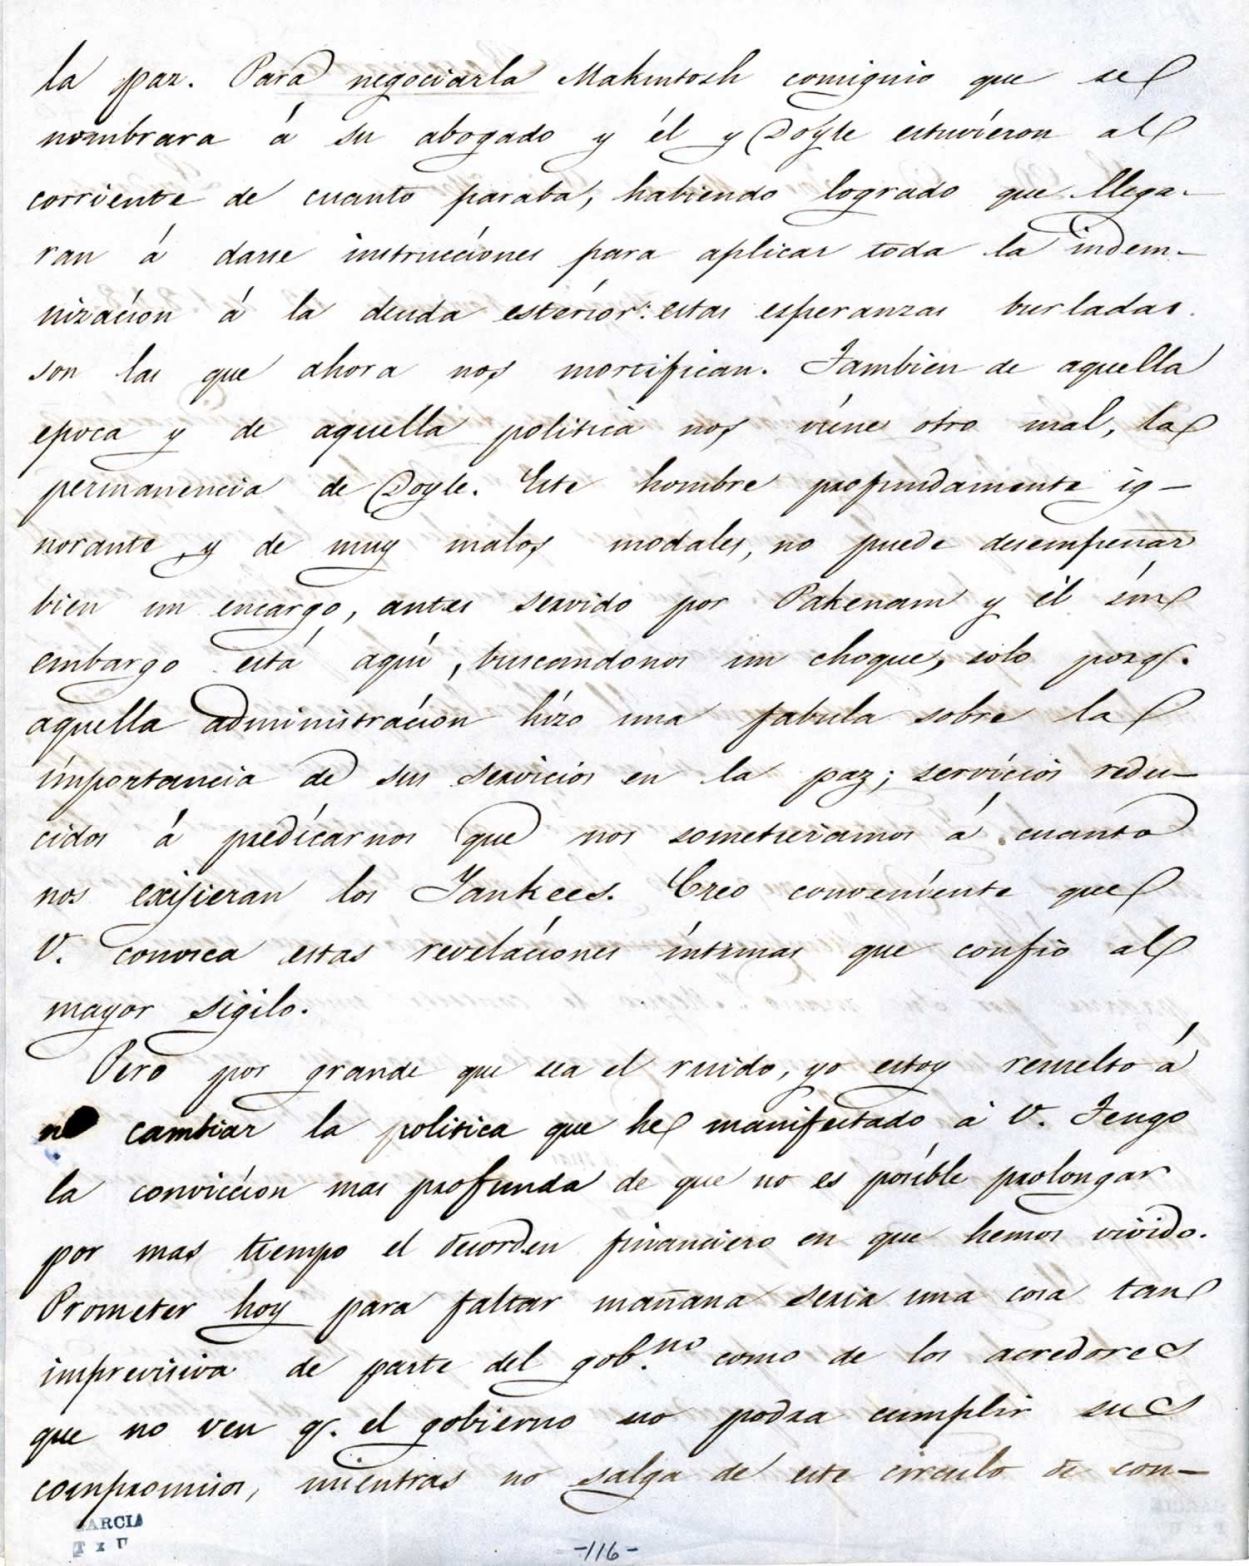 la paz. Para negociarla Makintosh consiguio que se
nombrara á su abogado y él y Doyle estuvieron al
corriente de cuanto pasaba, habiendo logrado que llega-
ran á darse instrucciones para aplicar toda la indem-
nización á la deuda esterior: estas esperanzas burladas
son las que ahora nos mortifican. Tambien de aquella
epoca y de aquella politica nos viene otro mal, la
permanencia de Doyle. Este hombre profundamente ig-
norante y de muy malos modales, no puede desempeñar
bien un encargo, antes servido por Pakenam y él sin
embargo está aquí, buscandonos un choque, solo porq.
aquella administracion hizo una fabula sobre la
importancia de sus servicios en la paz; servicios redu-
cidos á predicarnos que nos sometieramos á cuanto
nos exijieran los Yankees. Creo conveniente que
V. conosca estas revelaciones íntimas que confio al
mayor sigilo.
Pero por grande que sea el ruido, yo estoy resuelto á
no cambiar la politica que he manifestado á V. Tengo
la conviccion mas profunda de que no es posible prolongar
por mas tiempo el desorden financiero en que hemos vivido.
Prometer hoy para faltar mañana seria una cosa tan
imprevisiva de parte del gob.no como de los acredores
que no ven q. el gobierno no podra cumplir sus
compromisos, mientras no salga de este circulo de con-
GARCIA
-116-